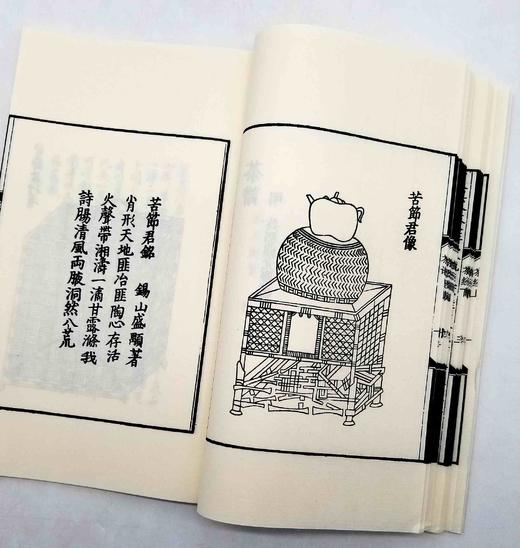 苦節君像
苦節君銘　錫山盛顒著
肖形天地匪冶匪陶心存活
火聲帶湘濤一滴甘露滌我
詩腸清風兩腋洞然八荒
茶譜